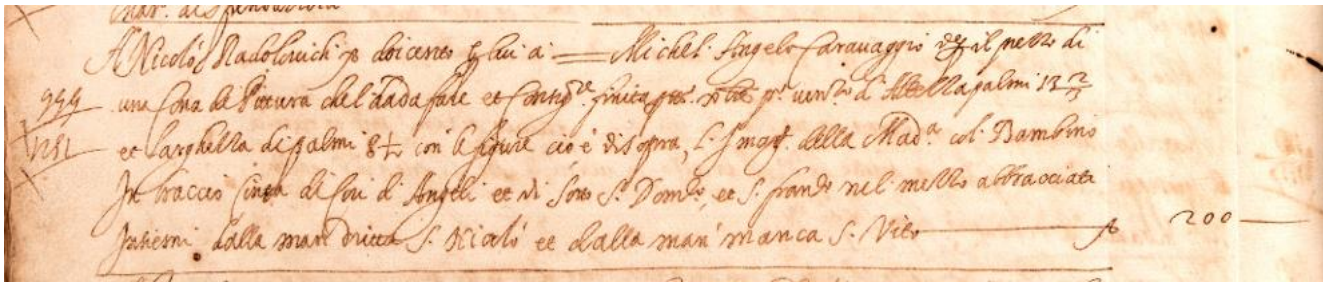 A Nicolò Radolovich D. doicento e per lui a Michel Angelo Caravaggio disse il prezzo di
una Cona de Pittura che l'ha da fare et consig.re finita per tutto Xbre pr. vent.o d'Altezza palmi 13 1/2
et larghezza di palmi 8 1/2 con le figure cioè di sopra, l'Imag.e della Mad.a col Bambino
In braccio cinta di Cori d'Angeli et di sotto S. Dom.co, et S. Fran.co nel mezzo abbracciati
Insiemi dalla man dritta S. Nicolò et dalla man' manca S. Vito
200